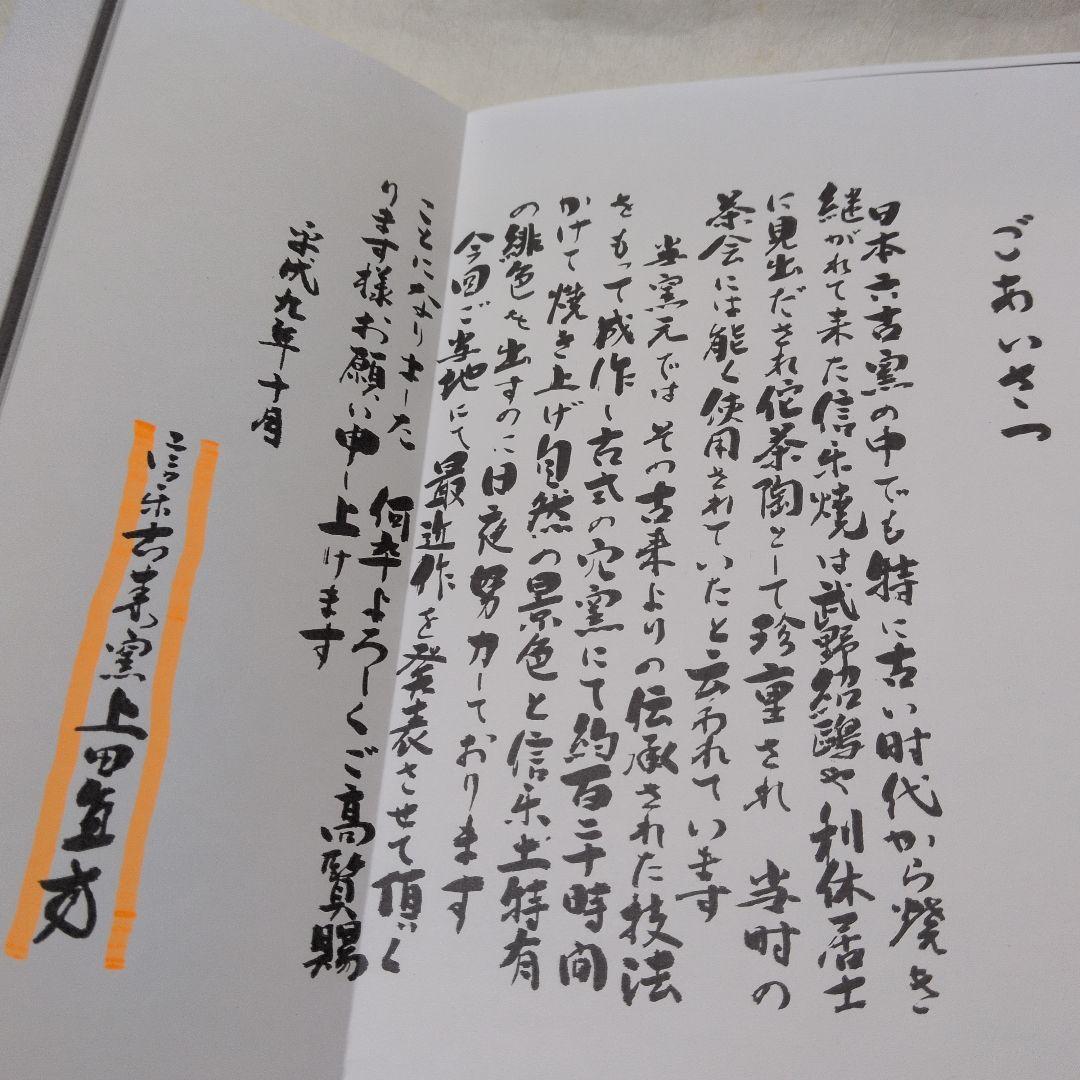 ごあいさつ
日本六古窯の中でも特に古い時代から焼き
継がれて来た信楽焼は武野紹鷗や利休居士
に見出だされ佗茶陶として珍重され 当时の
茶会には能く使用されていたと云われています
当窯元では その古来よりの伝承された技法
をもって成作し古式の穴窯にて約百二十時間
かけて焼き上げ自然の景色と信楽土特有
の緋色を出すのに日夜努力しております
今回ご当地にて最近作を発表させて頂く
ことになりました 何卒よろしくご高賢賜
ります様お願い申し上けます
平成九年十月
信楽古来窯上田直方